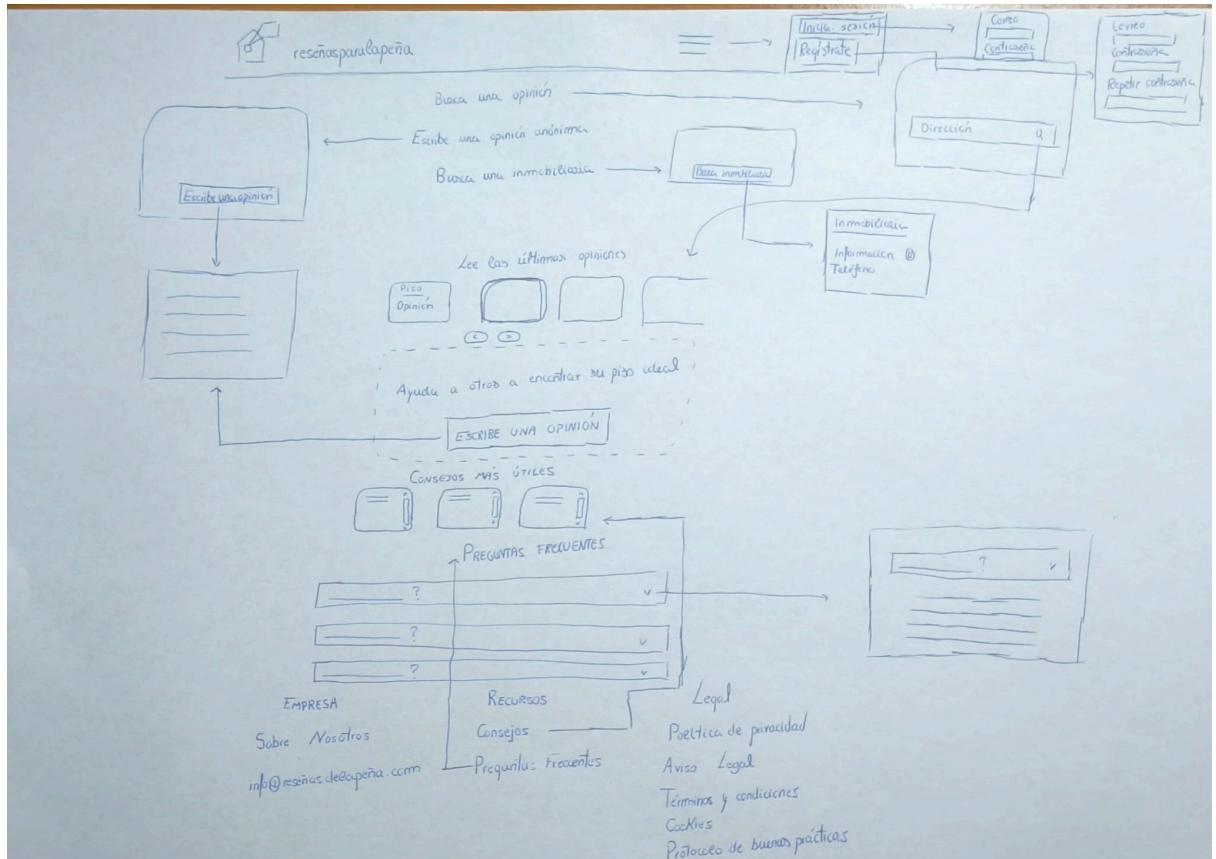 reseñasparalapeña
Inicia sesión
Regístrate
Correo
Contraseña
Correo
Contraseña
Repetir contraseña
Busca una opinión
Escribe una opinión anónima
Busca una inmobiliaria
Dirección
Escribe una opinión
Busca inmobiliaria
Inmobiliaria
Información
Teléfono
Lee las últimas opiniones
Piso
Opinión
< >
Ayuda a otros a encontrar su piso ideal
ESCRIBE UNA OPINIÓN
CONSEJOS MÁS ÚTILES
PREGUNTAS FRECUENTES
?
?
?
?
EMPRESA
Sobre Nosotros
info@reseñasdelapeña.com
RECURSOS
Consejos
Preguntas Frecuentes
Legal
Política de privacidad
Aviso Legal
Términos y condiciones
Cookies
Protocolo de buenas prácticas